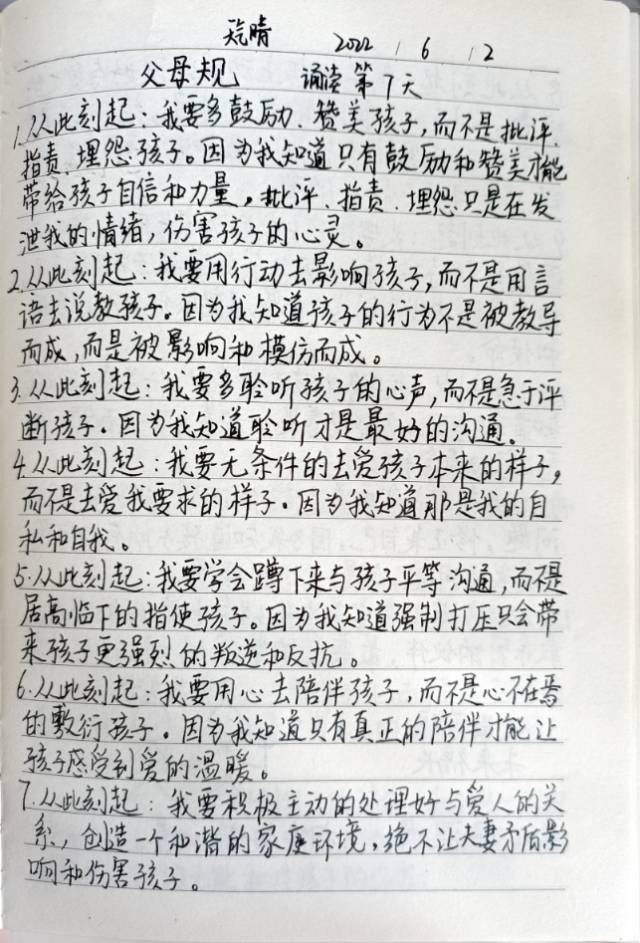 晴 2022 / 6 / 2
父母规 诵读 第7天
1.从此刻起：我要多鼓励、赞美孩子，而不是批评、
指责、埋怨孩子。因为我知道只有鼓励和赞美才能
带给孩子自信和力量，批评、指责、埋怨只是在发
泄我的情绪，伤害孩子的心灵。
2.从此刻起：我要用行动去影响孩子，而不是用言
语去说教孩子。因为我知道孩子的行为不是被教导
而成，而是被影响和模仿而成。
3.从此刻起：我要多聆听孩子的心声，而不是急于评
断孩子。因为我知道聆听才是最好的沟通。
4.从此刻起：我要无条件的去爱孩子本来的样子，
而不是去爱我要求的样子。因为我知道那是我的自
私和自我。
5.从此刻起：我要学会蹲下来与孩子平等沟通，而不是
居高临下的指使孩子。因为我知道强制打压只会带
来孩子更强烈的叛逆和反抗。
6.从此刻起：我要用心去陪伴孩子，而不是心不在焉
的敷衍孩子。因为我知道只有真正的陪伴才能让
孩子感受到爱的温暖。
7.从此刻起：我要积极主动的处理好与爱人的关
系，创造一个和谐的家庭环境，绝不让夫妻矛盾影
响和伤害孩子。